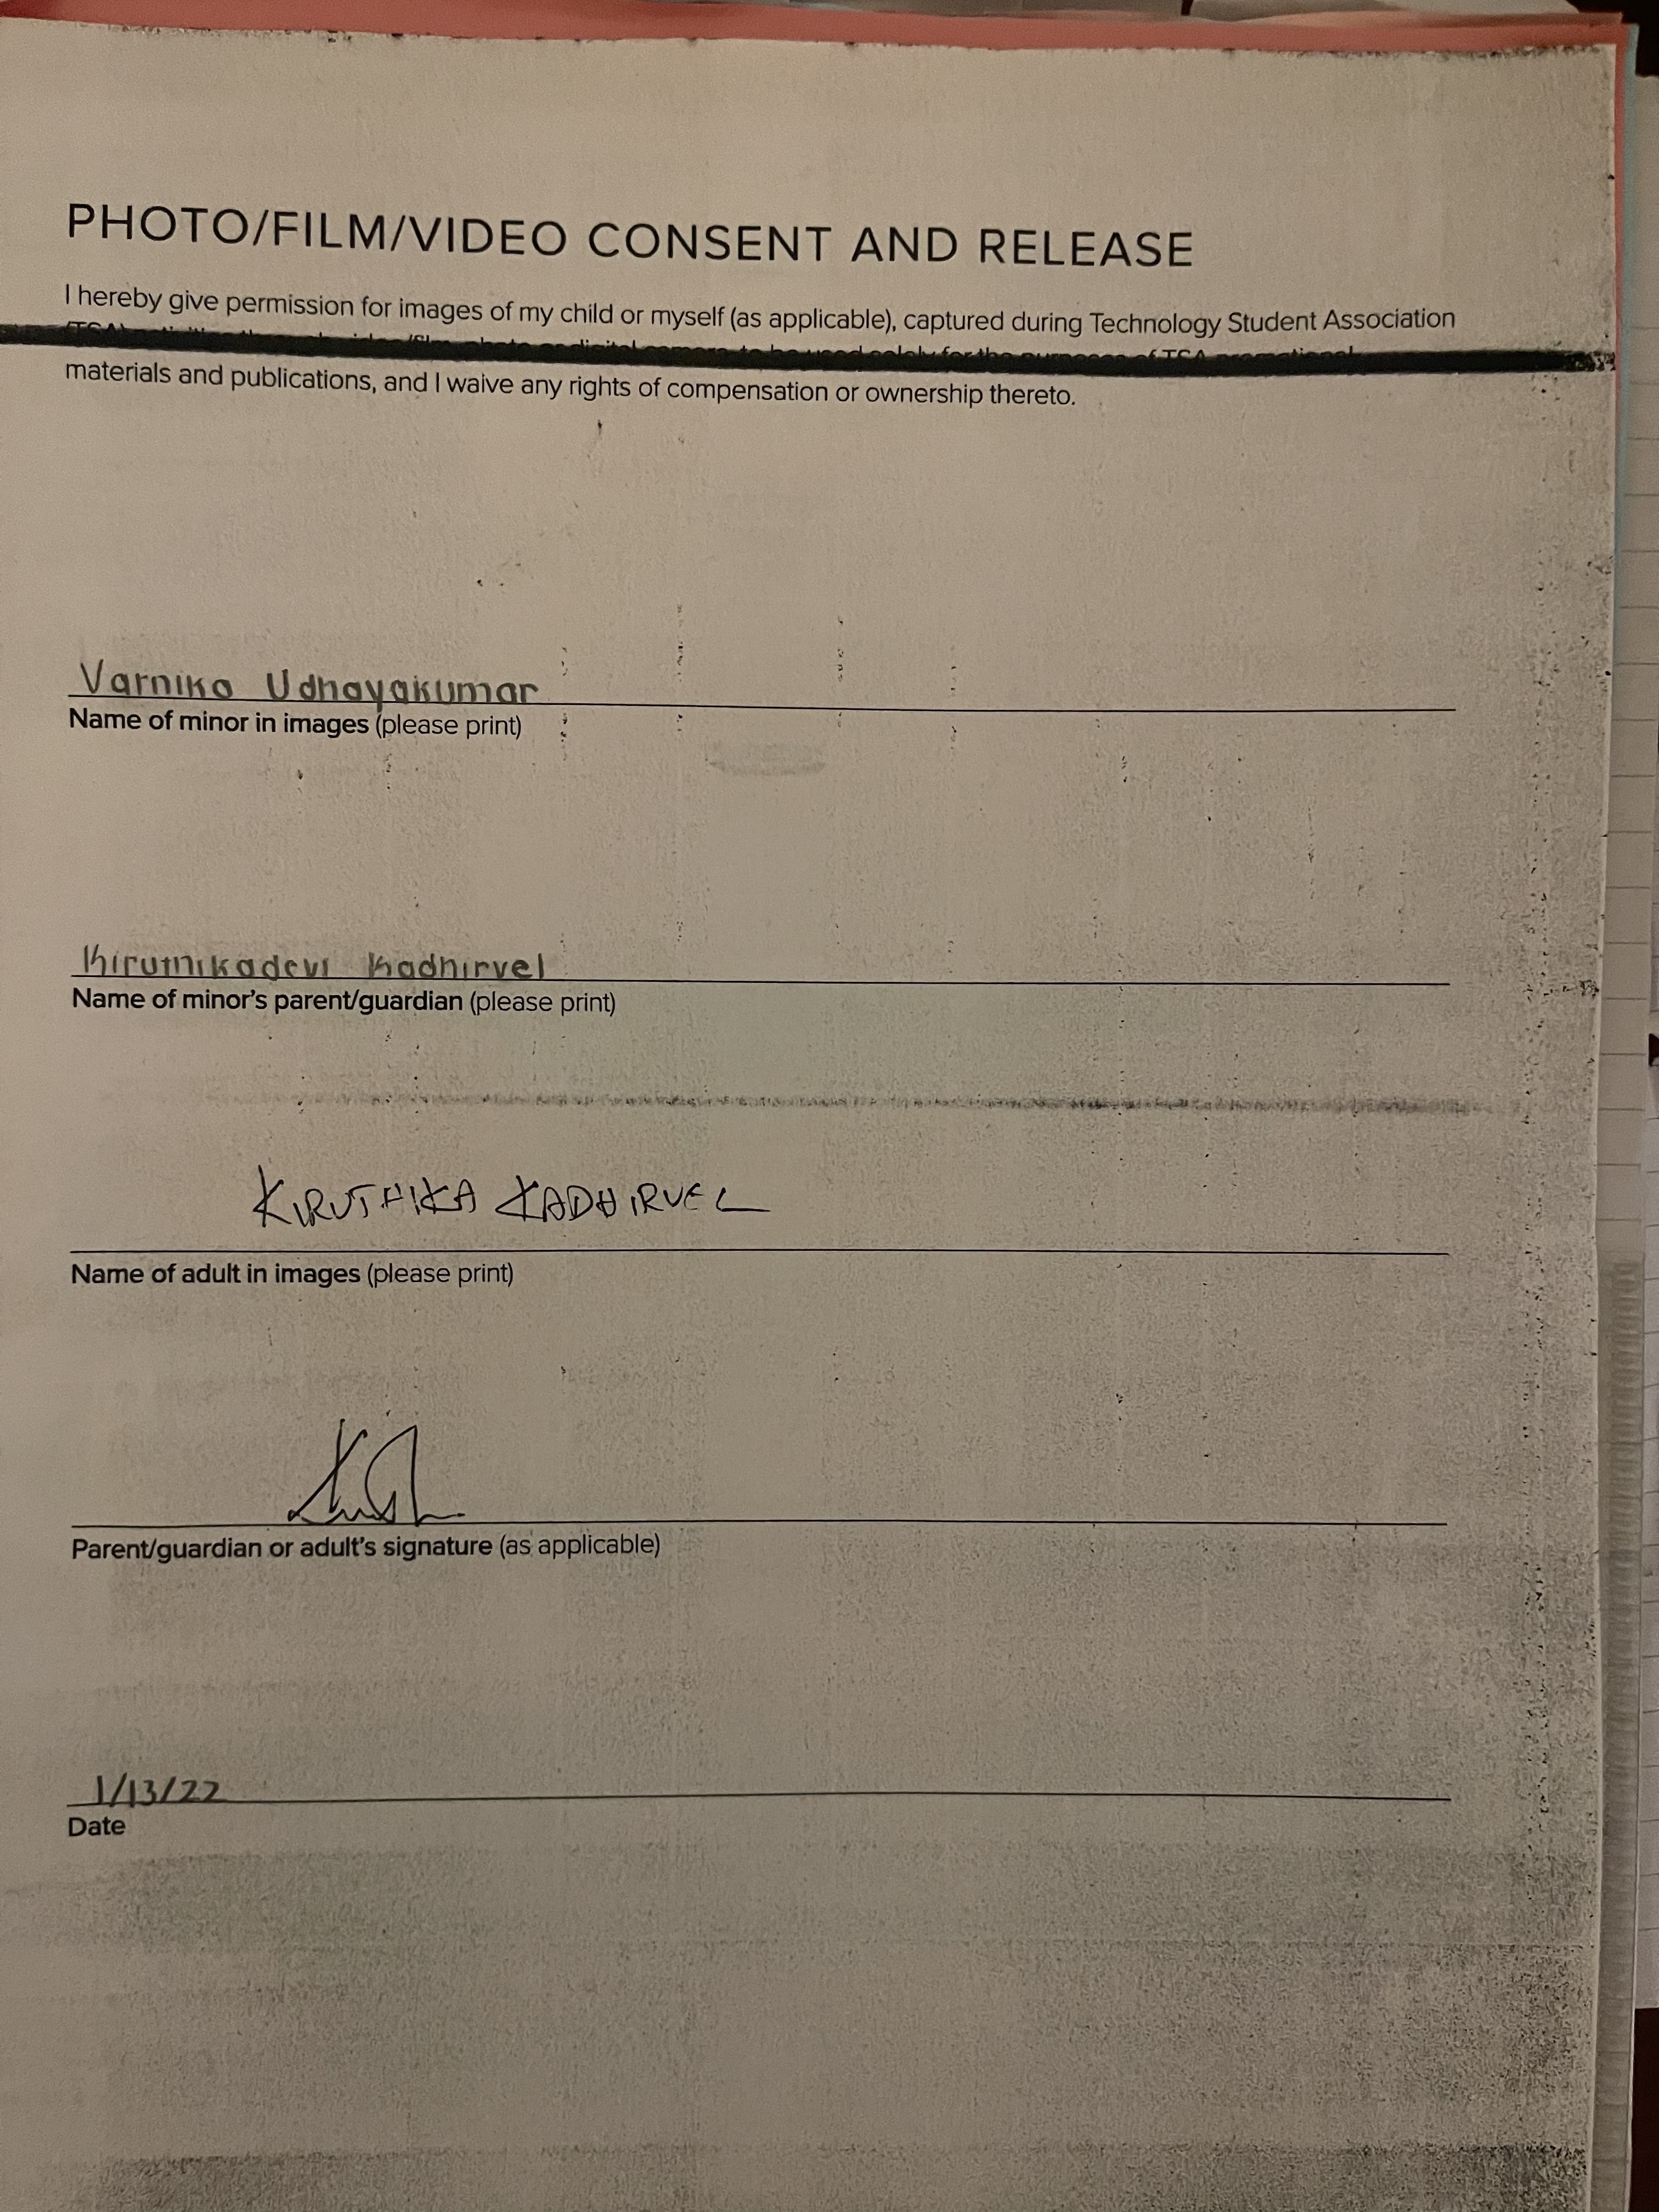 PHOTO/FILM/VIDEO CONSENT AND RELEASE
I hereby give permission for images of my child or myself (as applicable), captured during Technology Student Association
(TSA) activities through video/film, photo or digital camera, to be used solely for the purposes of TSA promotional
materials and publications, and I waive any rights of compensation or ownership thereto.
Varnika Udhayakumar
Name of minor in images (please print)
Kiruthikadevi Kadhirvel
Name of minor's parent/guardian (please print)
KIRUTHIKA KADHIRVEL
Name of adult in images (please print)
Parent/guardian or adult's signature (as applicable)
1/13/22
Date